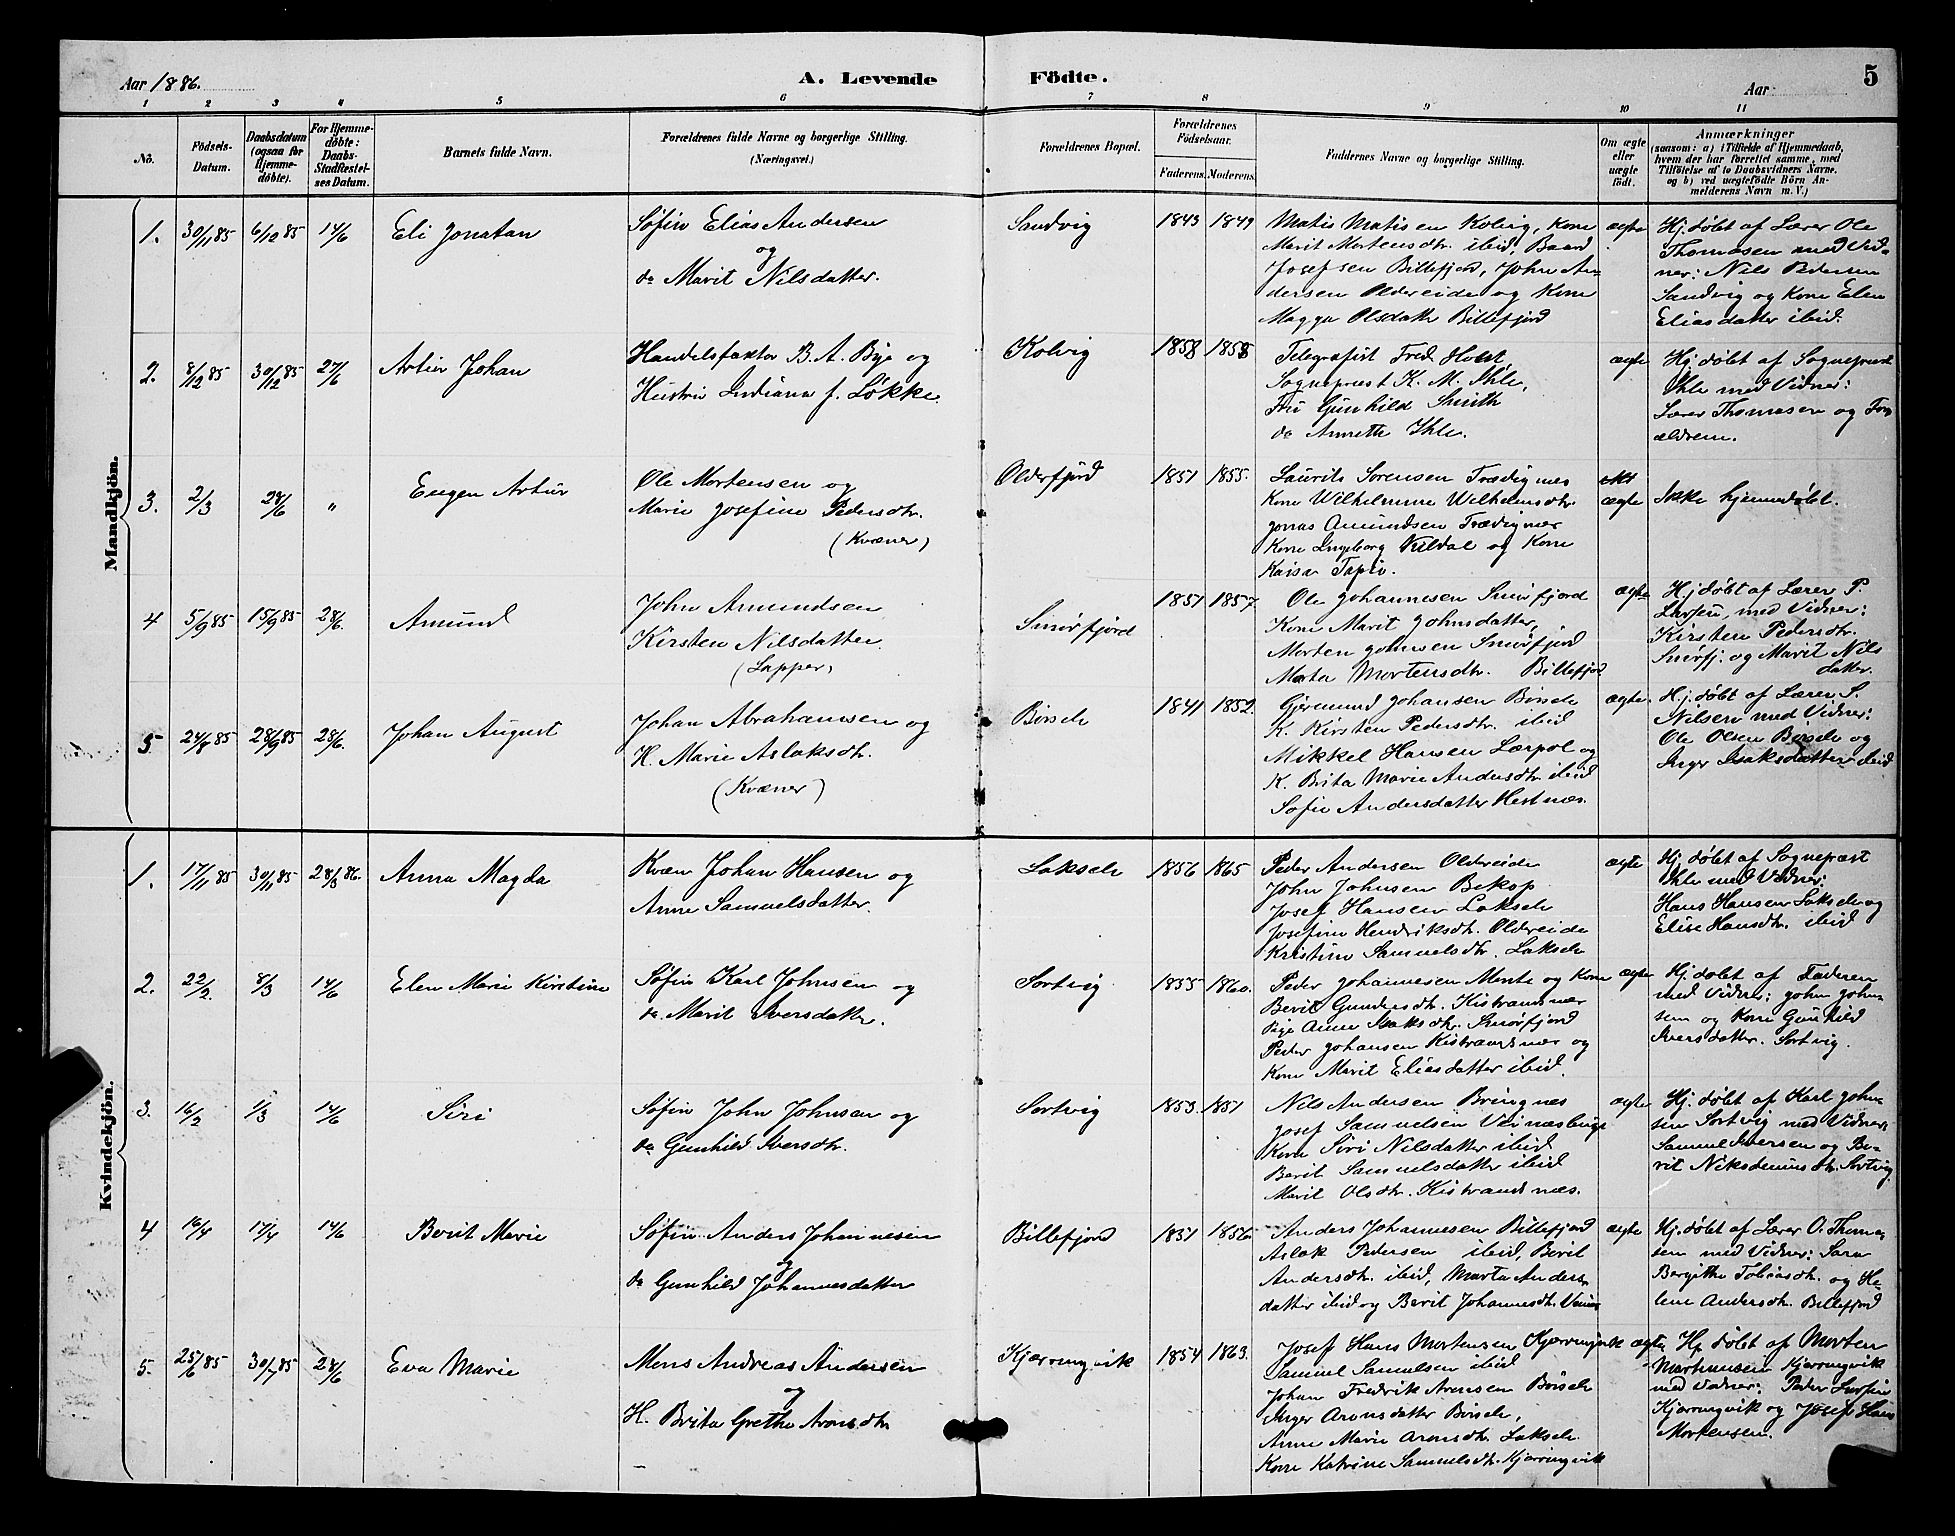 Aar 1886.
A. Levende Födte.
Aar
5
1 2 3 4 5 6 7 8 9 10 11
No.
Födsels-
Datum.
Daabsdatum
(ogsaa for
Hjemme-
döbte).
For Hjemme-
döbte:
Daabs-
Stadfæstel-
ses Datum.
Barnets fulde Navn.
Forældrenes fulde Navne og borgerlige Stilling.
(Næringsvei.)
Forældrenes Bopæl.
Forældrenes
Födselsaar.
Faderens. Moderens.
Faddernes Navne og borgerlige Stilling.
Om ægte
eller
uægte
födt.
Anmærkninger
(saasom: a) i Tilfælde af Hjemmedaab,
hvem der har forrettet samme, med
Tilföielse af to Daabsvidners Navne.
og b) ved uægtefödte Börn An-
melderens Navn m. V.)
Mandkjön.
1. 30/11 85 6/12 85 14/6 Eli Jonatan
Søfin Elias Andersen
og
do Marit Nilsdatter.
Sandvig 1843 1849
Matis Matisen Kolvig, Kone
Marit Mortensdtr. ibid, Baard
Josefsen Billefjord, John An-
dersen Oldereide og Kone
Magga Olsdattr Billefjord
ægte
Hj. døbt af Lærer Ole
Thomasen med Vid-
ner: Nils Pedersen
Sandvig og Kone Elen
Eliasdatter ibid.
2. 8/12 85 30/12 85 27/6 Artur Johan
Handelsfaktor B. A. Bye og
Hustru Indiana f. Løkke.
Kolvig 1858 1858
Telegrafist Fred Holst
Sognepræst K. M. Ihle,
Fru Gunhild Smith
do Annette Ihle.
ægte
Hj. døbt af Sognepræst
Ihle med Vidner:
Lærer Thomasen og For
ældrene.
3. 2/3 28/6 " Eugen Artur
Ole Mortensen og
Marie Josefine Pedersdtr.
(Kvæner)
Olderfjord 1851 1855.
Laurits Sorensen Trædignes
Kone Wilhelmine Wilhelmsdtr.
Jonas Amundsen Trædignær
Kone Ingeborg Kildal og Kone
Kaisa Tapio.
ægte
Ikke hjemmedøbt.
4 5/9 85 15/9 85 28/6. Amund
John Amundsen
Kirsten Nilsdatter.
(Lapper)
Smörfjord 1851 1857.
Ole Johannesen Smörfjord
Kone Marit Johnsdatter,
Morten Jonnsen Smörfjord
Marta Mortensdtr. Billefjord
ægte
Hj. døbt af Lærer P.
Larsen, med Vidner:
Kirsten Pedersdtr.
Smörfj. og Marit Nils
datter.
5 24/8 85 28/9 85 28/6. Johan August
Johan Abrahamsen og
H. Marie Aslaksdtr.
(Kvæner)
Børselv 1841 1852.
Gjermund Johansen Börselv
K. Kirsten Pedersdtr. ibid
Mikkel Hansen Lærpol og
K. Brita Marie Andersdtr ibid
Sofie Andersdatter Hestnæs.
ægte.
Hj. døbt af Lærer S.
Nilsen med Vidner:
Ole Olsen Börselv og
Inger Isaksdatter ibid
Kvindekjön.
1. 17/11 85 30/11 85 28/3 86. Anna Magda
Kvæn Johan Hansen og
Anne Samuelsdatter.
Lakselv 1856 1865
Peder Andersen Oldereide
John Johnsen Bekop
Josef Hansen Lakselv
Josefine Hendriksdtr. Oldereide
Kristine Samuelsdtr. Lakselv
ægte
Hj. døbt af Sognepræst
Ihle med Vidner:
Hans Hansen Lakselv og
Elise Hansdtr. ibid
2. 22/2. 8/3 14/6 Elen Marie Kirstine
Søfin Karl Johnsen og
do. Marit Iversdatter.
Sortvig 1855 1860.
Peder Johannesen Mente og Kone
Berit Gundersdtr. Kistrandnær
Pige Anne Isaksdtr. Smörfjord
Peder Johansen Kistrandsnær og
Kone Marit Eliasdatter ibid.
ægte
Hj. døbt af Faderen
med Vidner: John John-
sen og Kone Gunhild
Iversdatter. Sortvig.
3. 16/2 1/3 14/6 Siri
Søfin John Johnsen og
do Gunhild Iversdtr.
Sortvig 1853. 1851
Nils Andersen Bringnes
Josef Samuelsen Veinesbugt
Kone Siri Nilsdatter ibid
Berit Samuelsdatter ibid
Marit Olsdtr. Kistrandsnæs.
ægte
Hj. døbt af Karl John-
sen Sortvig med Vidner:
Samuel Iversen og Be-
rit Nikodemusdtr. Sortvig.
4 16/4 17/4 14/6 Berit Marie
Søfin Anders Johannesen
og
do Gunhild Johannesdatter
Billefjord 1851 1856
Anders Johannesen Billefjord
Aslak Pedersen ibid, Berit
Andersdtr. ibid, Marta Anders
datter ibid og Berit Johannesdtr. Veines
ægte
Hj. døbt af Lærer O. Thoma-
sen med Vidner: Sara
Bergitte Tobiasdtr. og He-
lene Andersdtr. Billefjord
5. 25/6 85 30/7 85 28/6 Eva Marie
Mons Andreas Andersen
og
H. Brita Grethe Aronsdtr.
Kjærringvik 1854 1863.
Josef Hans Mortensen Kjærringvik
Samuel Samuelsen ibid
Johan Fredrik Aronsen Börselv
Inger Aronsdatter Börselv,
Anne Marie Aronsdtr. Lakselv
Kone Katrine Samuelsdtr. Kjærringvik
ægte
Hj. døbt af Morten
Mortensen Kjærringvik
med Vidner: Peder
Kjærringvik og Josef Hans
Mortensen.